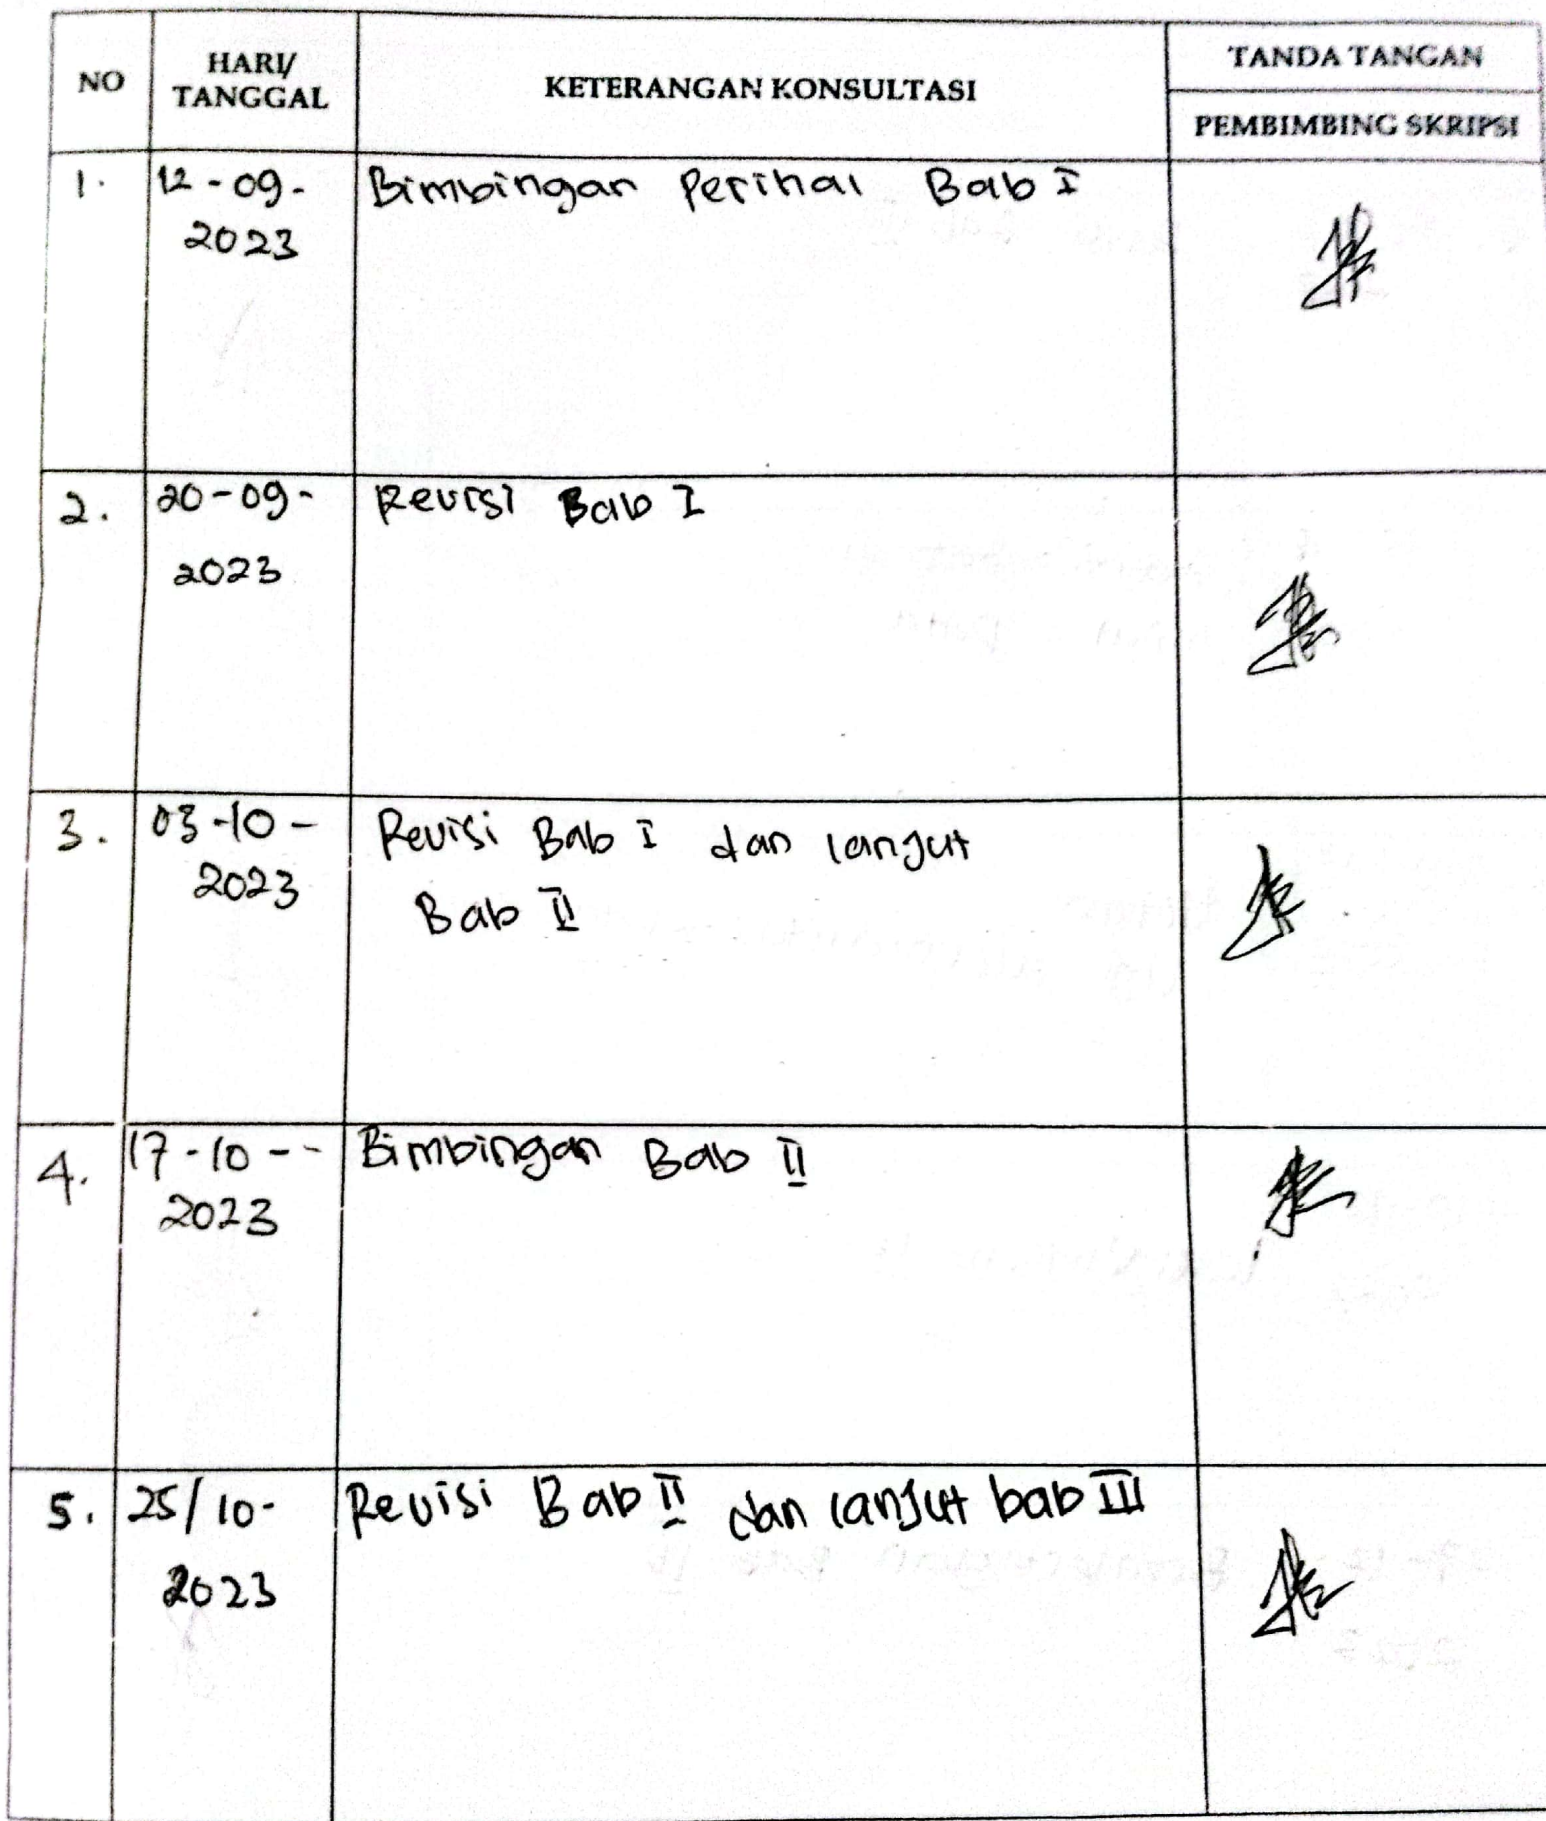 NO
HARI/
TANGGAL
KETERANGAN KONSULTASI
TANDA TANGAN
PEMBIMBING SKRIPSI
1. 12-09- Bimbingan Perihal Bab I
2023
2. 20-09- Revisi Bab I
2023
3. 03-10- Revisi Bab I dan lanjut
2023 Bab II
4. 17-10-- Bimbingan Bab II
2023
5. 25/10- Revisi Bab II dan lanjut bab III
2023